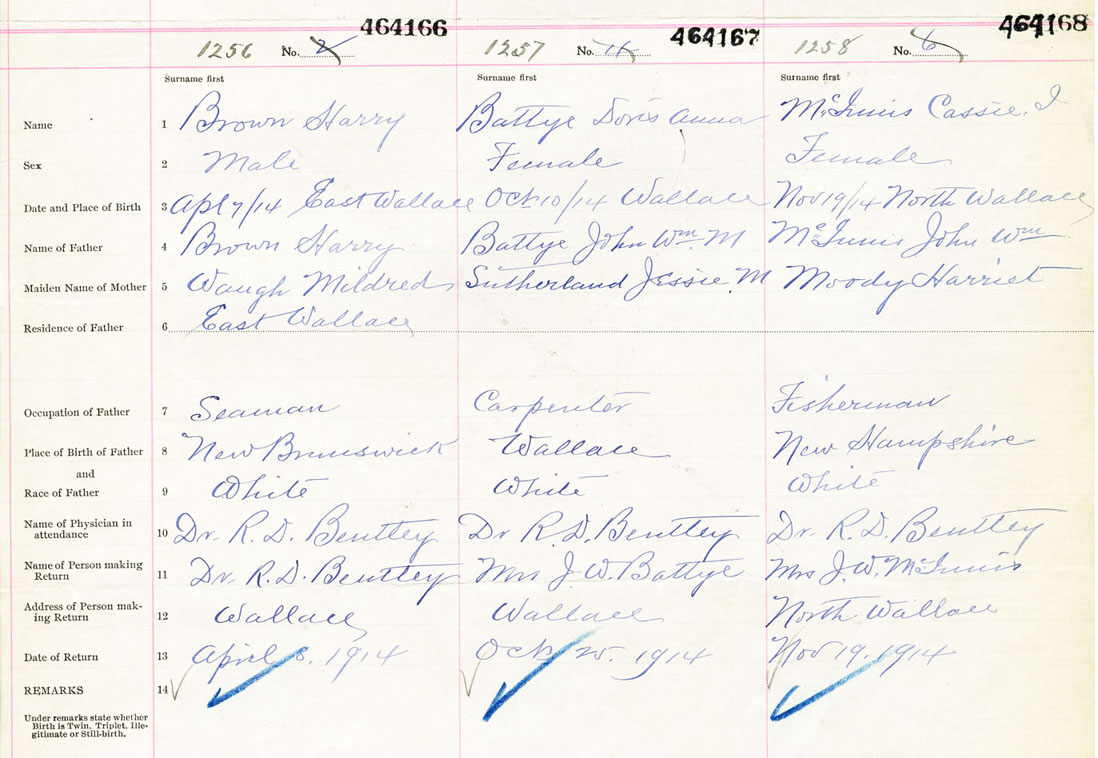 464166 464167 464168
1256 No. 2 1257 No. 4 1258 No. 6
Surname first Surname first Surname first
Name 1 Brown Harry Battye Doris Anna McInnis Cassie. I
Sex 2 Male Female Female
Date and Place of Birth 3 Apl 7/14 East Wallace Oct 10/14 Wallace Nov 19/14 North Wallace
Name of Father 4 Brown Harry Battye John Wm. M McInnis John Wm
Maiden Name of Mother 5 Waugh Mildred Sutherland Jessie. M Moody Harriet
Residence of Father 6 East Wallace
Occupation of Father 7 Seaman Carpenter Fisherman
Place of Birth of Father 8 New Brunswick Wallace New Hampshire
and
Race of Father 9 White White White
Name of Physician in
attendance 10 Dr. R. D. Benttey Dr R. D. Benttey Dr. R. D. Benttey
Name of Person making
Return 11 Dr. R. D. Benttey Mrs J. W. Battye Mrs J. W. McInnis
Address of Person mak-
ing Return 12 Wallace Wallace North Wallace
Date of Return 13 April 8. 1914 Oct 25. 1914 Nov 19. 1914
REMARKS 14
Under remarks state whether
Birth is Twin, Triplet, Ille-
gitimate or Still-birth.